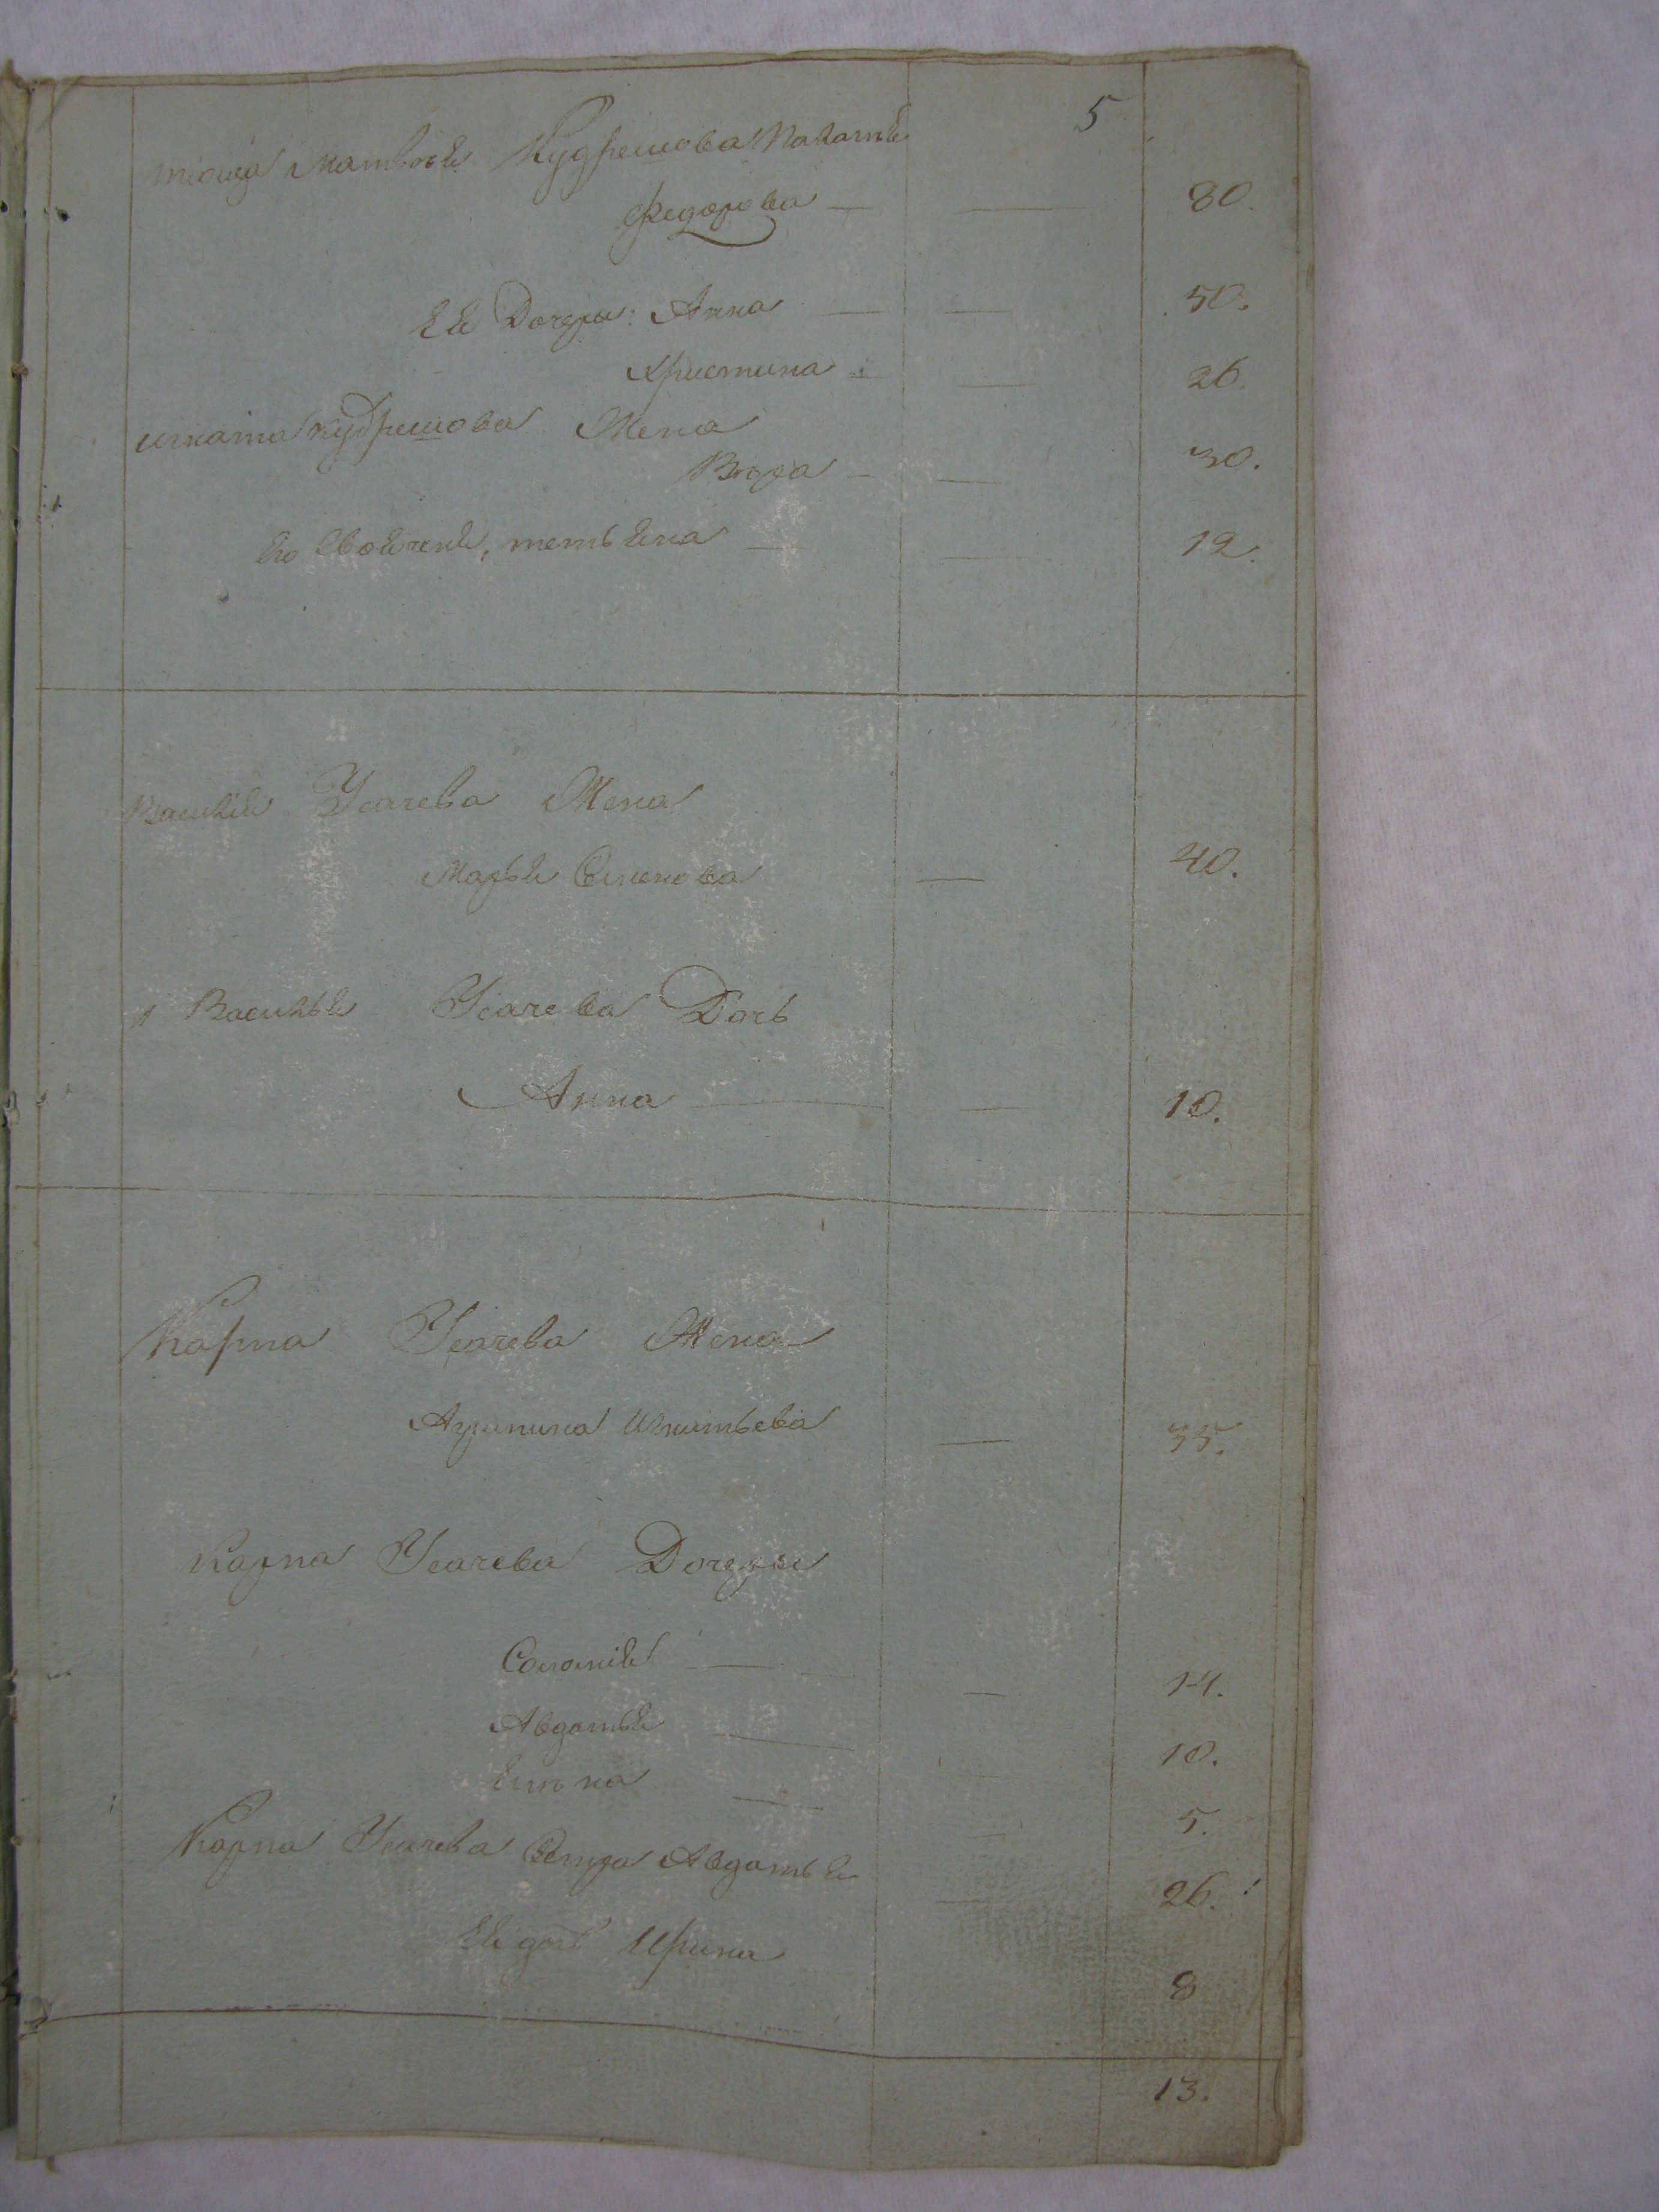 5
Матвея Кудрешова
Федорова — — 80.
Ея Дочери: Анна — — 50.
Христина — — 26.
Игната Кудрешова Жена
— — 30.
Его — — 12.
Василия Усачева Жена
Марья Семенова — 40.
Василья Усачева Дочь
Анна — — 10.
Карпа Усачева Жена
Агрипина — 35.
Карпа Усачева Дочери
Соломия — — 14.
Авдотья — — 10.
— — 5.
Карпа Усачева Сестра Авдотья — 26.
Ея дочь Ирина 8
13.